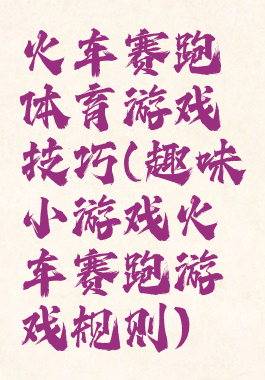 火车赛跑
体育游戏
技巧(趣味
小游戏火
车赛跑游
戏规则)